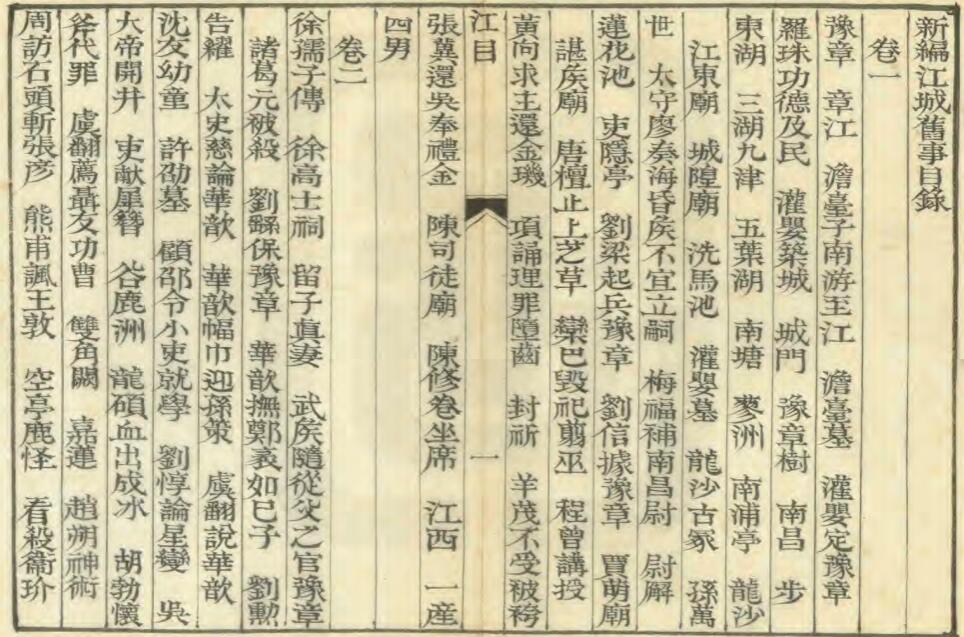 新編江城舊事目錄
卷一
豫章　章江　澹臺子南游至江　澹臺墓　灌嬰定豫章
羅珠功德及民　灌嬰築城　城門　豫章樹　南昌　步
東湖　三湖九津　五葉湖　南塘　蓼洲　南浦亭　龍沙
江東廟　城隍廟　洗馬池　灌嬰墓　龍沙古冢　孫萬
世　太守廖奏海昏矦不宜立嗣　梅福補南昌尉　尉廨
蓮花池　吏隱亭　劉梁起兵豫章　劉信據豫章　賈萌廟
諶矦廟　唐檀止上芝草　欒巴毀祀翦巫　程曾講授
黃向求主還金璣　項誦理罪墮齒　封祈　羊茂不受被袴
江目
一
張冀還吳奉禮金　陳司徒廟　陳修卷坐席　江西　一產
四男
卷二
徐孺子傳　徐高士祠　留子真妻　武矦隨從父之官豫章
諸葛元被殺　劉繇保豫章　華歆撫鄭袤如已子　劉勳
告糴　太史慈論華歆　華歆幅巾迎孫策　虞翻說華歆
沈友幼童　許劭墓　顧邵令小吏就學　劉惇論星變　吳
大帝開井　吏獻犀簪　谷鹿洲　龍碩血出成冰　胡勃懷
斧代罪　虞翻薦聶友功曹　雙角闕　嘉蓮　趙朔神術
周訪石頭斬張彥　熊甫諷王敦　空亭鹿怪　看殺衞玠